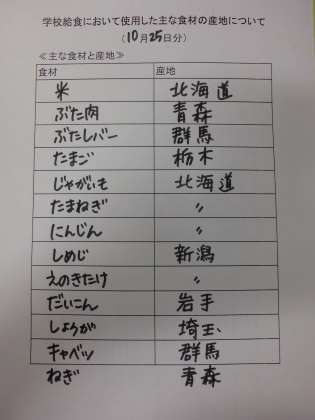 学校給食において使用した主な食材の産地について
(10月25日分)
≪主な食材と産地≫
食材 産地
米 北海道
ぶた肉 青森
ぶたレバー 群馬
たまご 栃木
じゃがいも 北海道
たまねぎ 〃
にんじん 〃
しめじ 新潟
えのきたけ 〃
だいこん 岩手
しょうが 埼玉
キャベツ 群馬
ねぎ 青森